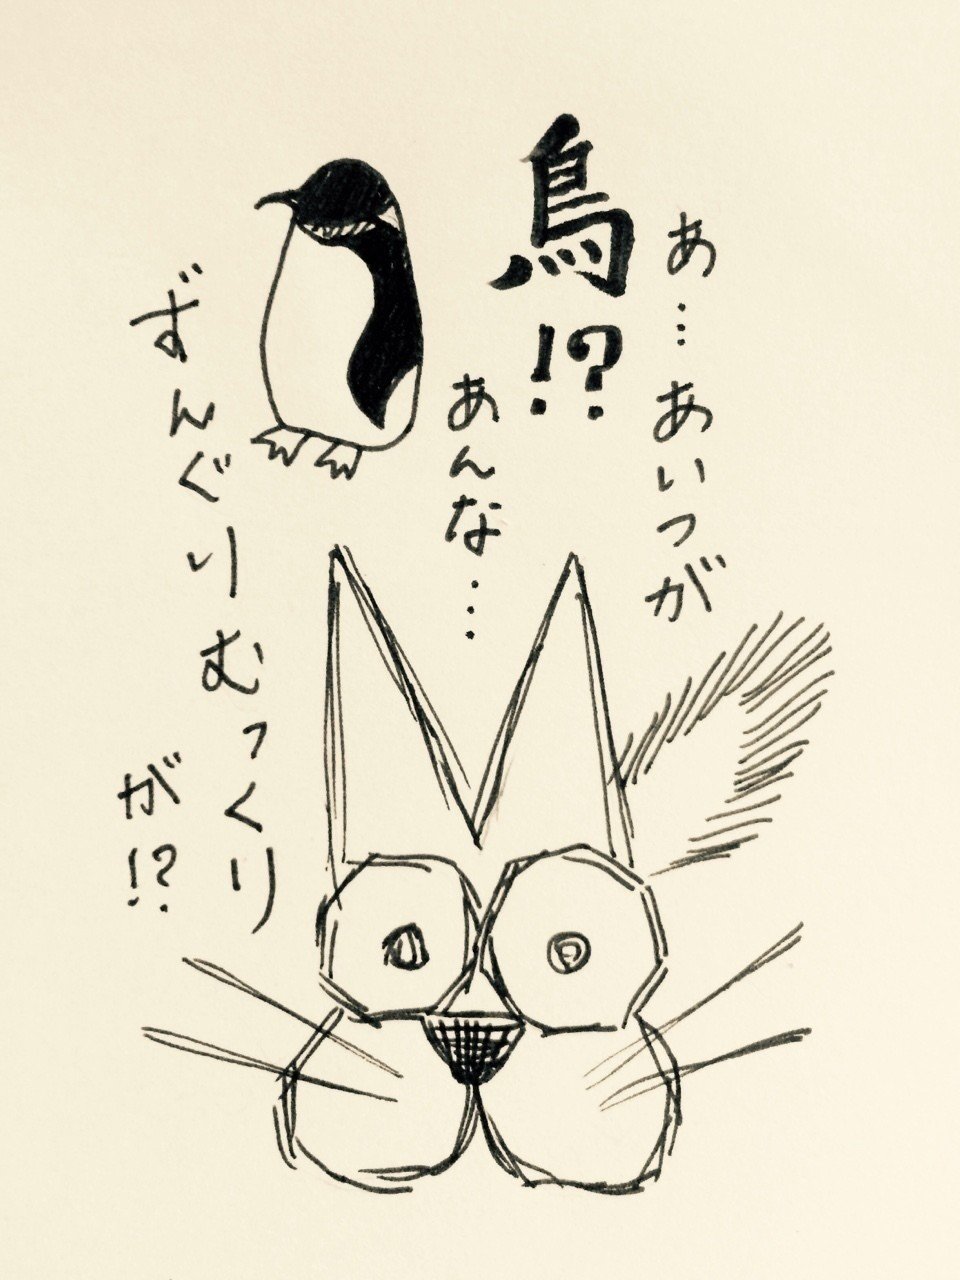 あ…あいつが
鳥!?
あんな…
ずんぐりむっくり
が!?